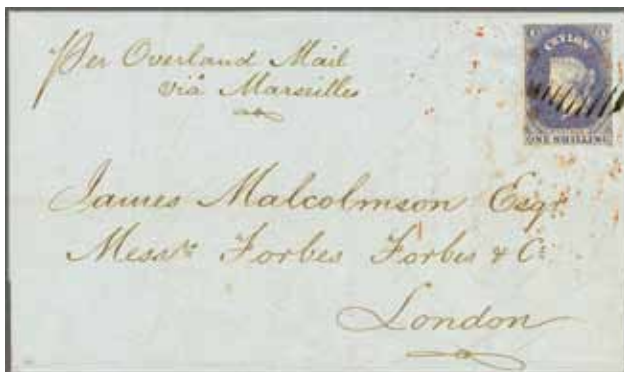 Per Overland Mail
via Marseilles
CEYLON
ONE SHILLING
James Malcolmson Esqr
Messrs Forbes Forbes & Co
London